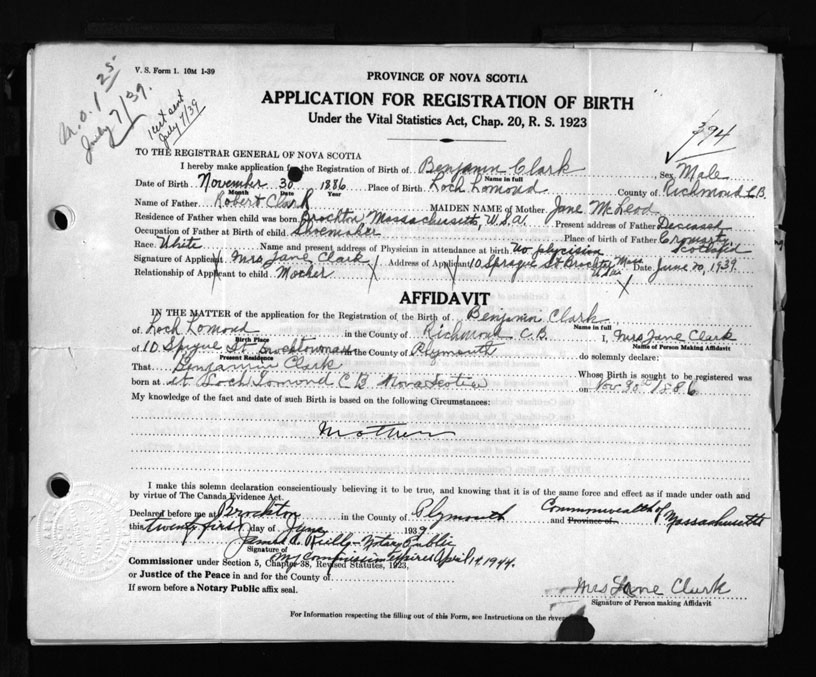 V. S. Form 1. 10M 1-39
M.O. 1 25
July 7/39.
July 7/39
394
PROVINCE OF NOVA SCOTIA
APPLICATION FOR REGISTRATION OF BIRTH
Under the Vital Statistics Act, Chap. 20, R. S. 1923
TO THE REGISTRAR GENERAL OF NOVA SCOTIA
I hereby make application for the Registration of Birth of Benjamin Clark Sex Male
Name in full
Date of Birth November 30 1886 Place of Birth Loch Lomond County of Richmond C.B.
Month Date Year
Name of Father Robert Clark MAIDEN NAME of Mother Jane McLeod
Residence of Father when child was born Brockton Massachusetts, U.S.A. Present address of Father Deceased
Occupation of Father at Birth of child Shoemaker Place of birth of Father Cromarty, Scotland
Race White Name and present address of Physician in attendance at birth no physician
Signature of Applicant Mrs Jane Clark Address of Applicant 10 Sprague St Brockton Mass U.S.A. Date June 20, 1939.
Relationship of Applicant to child Mother
AFFIDAVIT
IN THE MATTER of the application for the Registration of the Birth of Benjamin Clark
Name in full
of Loch Lomond in the County of Richmond C.B. I, Mrs Jane Clark
Birth Place Name of Person Making Affidavit
of 10 Sprgue St. Brockton mass in the County of Plymouth do solemnly declare:
Present Residence
That Benjamin Clark Whose Birth is sought to be registered was
born at at Loch Lomond C B Nova Scotia on Nov 30 1886
My knowledge of the fact and date of such Birth is based on the following Circumstances:
Mother
I make this solemn declaration conscientiously believing it to be true, and knowing that it is of the same force and effect as if made under oath and
by virtue of The Canada Evidence Act.
Declared before me at Brockton in the County of Plymouth and Province of Commonwealth of Massachusetts
this twenty first day of June 1939.
James C. Reilly - Notary Public
Signature of
My Commission Expires April 14 1944.
Commissioner under Section 5, Chapter 38, Revised Statutes, 1923,
or Justice of the Peace in and for the County of
If sworn before a Notary Public affix seal.
Mrs Jane Clark
Signature of Person making Affidavit
For Information respecting the filling out of this Form, see Instructions on the reverse